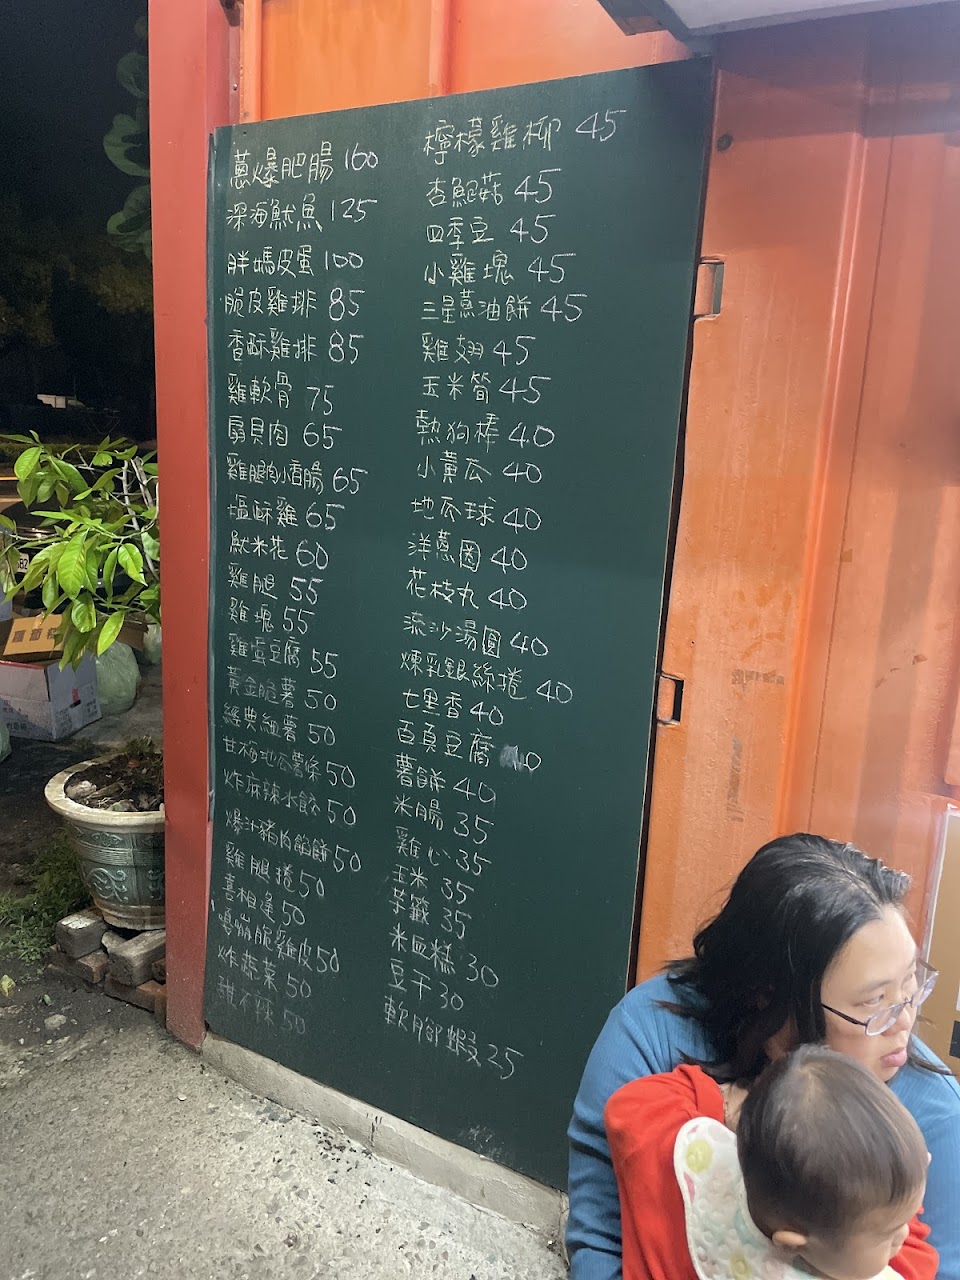 蔥爆肥腸 160
深海魷魚 125
胖媽皮蛋 100
脆皮雞排 85
香酥雞排 85
雞軟骨 75
扇貝肉 65
雞腿肉小香腸 65
塩酥雞 65
魷米花 60
雞腿 55
雞塊 55
雞蛋豆腐 55
黃金脆薯 50
經典細薯 50
甘梅地瓜薯條 50
炸麻辣水餃 50
爆汁豬肉餡餅 50
雞腿捲 50
喜相逢 50
嘎嘣脆雞皮 50
炸蔬菜 50
甜不辣 50
檸檬雞柳 45
杏鮑菇 45
四季豆 45
小雞塊 45
三星蔥油餅 45
雞翅 45
玉米筍 45
熱狗棒 40
小黃瓜 40
地瓜球 40
洋蔥圈 40
花枝丸 40
流沙湯圓 40
煉乳銀絲捲 40
七里香 40
百頁豆腐 40
薯餅 40
米腸 35
雞心 35
玉米 35
芋籤 35
米血糕 30
豆干 30
軟腳蝦 25